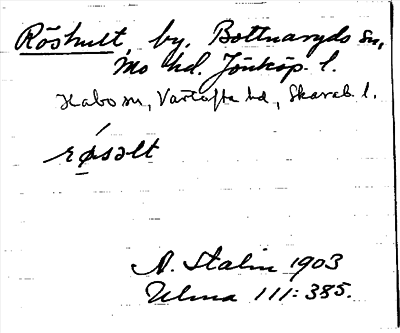 Röshult, by. Bottnaryds sn,
Mo hd. Jönköp. l.
Habo sn, Vartofta hd, Skarab. l.
rǿsəlt
A. Stalin 1903
Ulma 111:385.